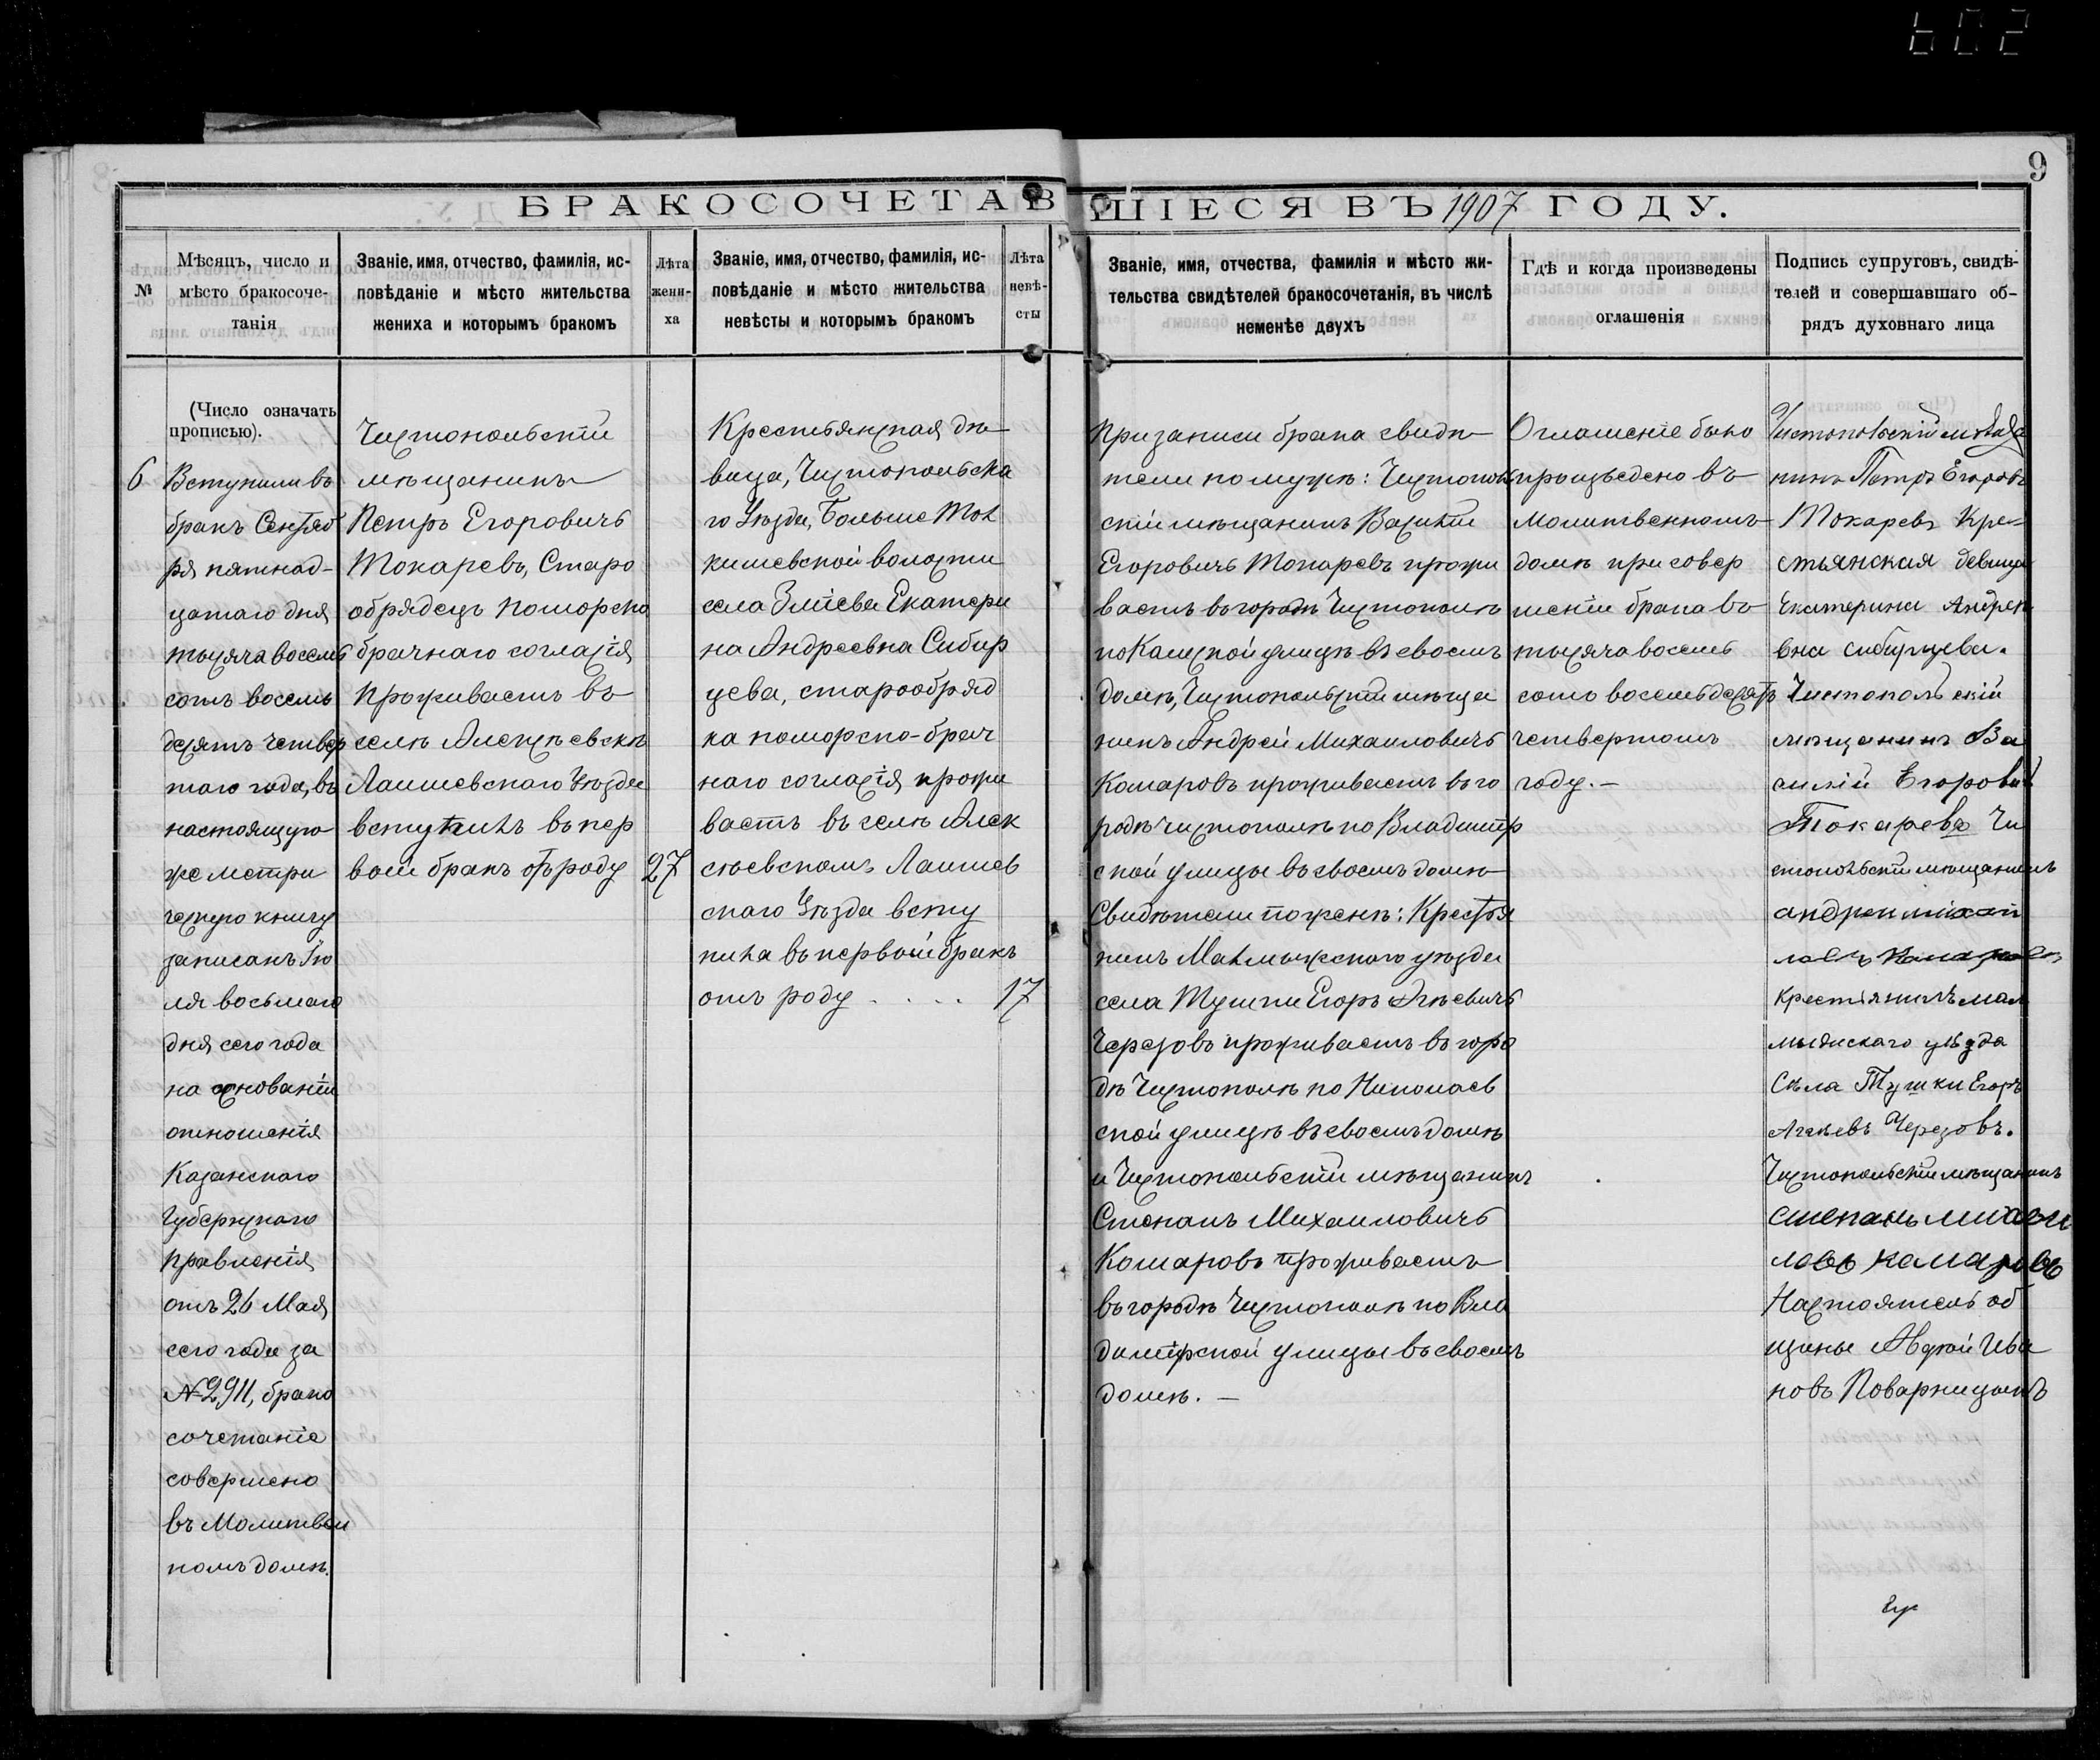 602
9
БРАКОСОЧЕТАВШІЕСЯ ВЪ 1907 ГОДУ.
№
Мѣсяцъ, число и
мѣсто бракосоче-
танія
Званіе, имя, отчество, фамилія, ис-
повѣданіе и мѣсто жительства
жениха и которымъ бракомъ
Лѣта
жени-
ха
Званіе, имя, отчество, фамилія, ис-
повѣданіе и мѣсто жительства
невѣсты и которымъ бракомъ
Лѣта
невѣ-
сты
Званіе, имя, отчества, фамилія и мѣсто жи-
тельства свидѣтелей бракосочетанія, въ числѣ
неменѣе двухъ
Гдѣ и когда произведены
оглашенія
Подпись супруговъ, свидѣ-
телей и совершавшаго об-
рядъ духовнаго лица
(Число означать
прописью).
6
Вступили въ
бракъ Сентяб
ря пятнад-
цатаго дня
тысяча восемь
сотъ восемь
десятъ четвер
таго года, въ
настоящую
же метри
ческую книгу
записанъ Ію
ля восьмаго
дня сего года
на основаніи
отношенія
Казанскаго
Губернскаго
Правленія
отъ 26 Мая
сего года за
№ 2911, брако
сочетаніе
совершено
въ Молитвен
номъ домѣ.
Чистопольскіи
мѣщанинъ
Петръ Егоровичъ
Токаревъ, Старо
обрядецъ поморско
брачнаго согласія
проживаетъ въ
селѣ Алексѣевскѣ
Лаишевскаго Уѣзда
вступилъ въ пер
вой бракъ отъ роду
27
Крестьянская дѣ
вица, Чистопольска
го Уѣзда, Больше Тол
кишевской волости
села Змѣева Екатери
на Андреевна Сибир
цева, старообряд
ка поморско-брач
наго согласія прожи
ваетъ въ селѣ Алек
сѣевскомъ Лаишев
скаго Уѣзда всту
пила въ первой бракъ
отъ роду . . . . 17
При записи брака свидѣ
тели по мужѣ: Чистополь
скіи мѣщанинъ Василіи
Егоровичъ Токаревъ прожи
ваетъ въ городѣ Чистополѣ
по Казанской улицѣ въ своемъ
домѣ, Чистопольскіи мѣща
нинъ Андрей Михаиловичъ
Комаровъ проживаетъ въ го
родѣ Чистополѣ по Владимір
ской улицы въ своемъ домѣ
Свидѣтели по женѣ: Крестья
нинъ Малмыжскаго уѣзда
села Тушки Егоръ Агѣевичъ
Черезовъ проживаетъ въ горо
дѣ Чистополѣ по Николаев
ской улицѣ въ своемъ домѣ
и Чистопольскіи мѣщанинъ
Степанъ Михаиловичъ
Комаровъ проживаетъ
въ городѣ Чистополѣ по Вла
димірской улицы въ своемъ
домѣ. —
Оглашеніе было
произведено въ
Молитвенномъ
домѣ при совер
шеніи брака въ
тысяча восемь
сотъ восемьдесятъ
четвертомъ
году. —
Чистопольскій мѣща
нинъ Петръ Егоровъ
Токаревъ Кре-
стьянская девица
Екатерина Андрее
вна сибирцева.
Чистопольскій
мѣщанинъ Ва
силій Егоровъ
Токаревъ Чи
стопольскіи мѣщанинъ
андреи михаи
ловъ Камаровъ
Крестіянинъ мал
мыжскаго уѣзда
Села Тушки Егоръ
Агѣевъ Черезовъ.
Чистопольскіи мѣщанинъ
степанъ михаи
ловъ камаровъ
Настоятель об
щины Авдкой Ива
новъ Поварницынъ